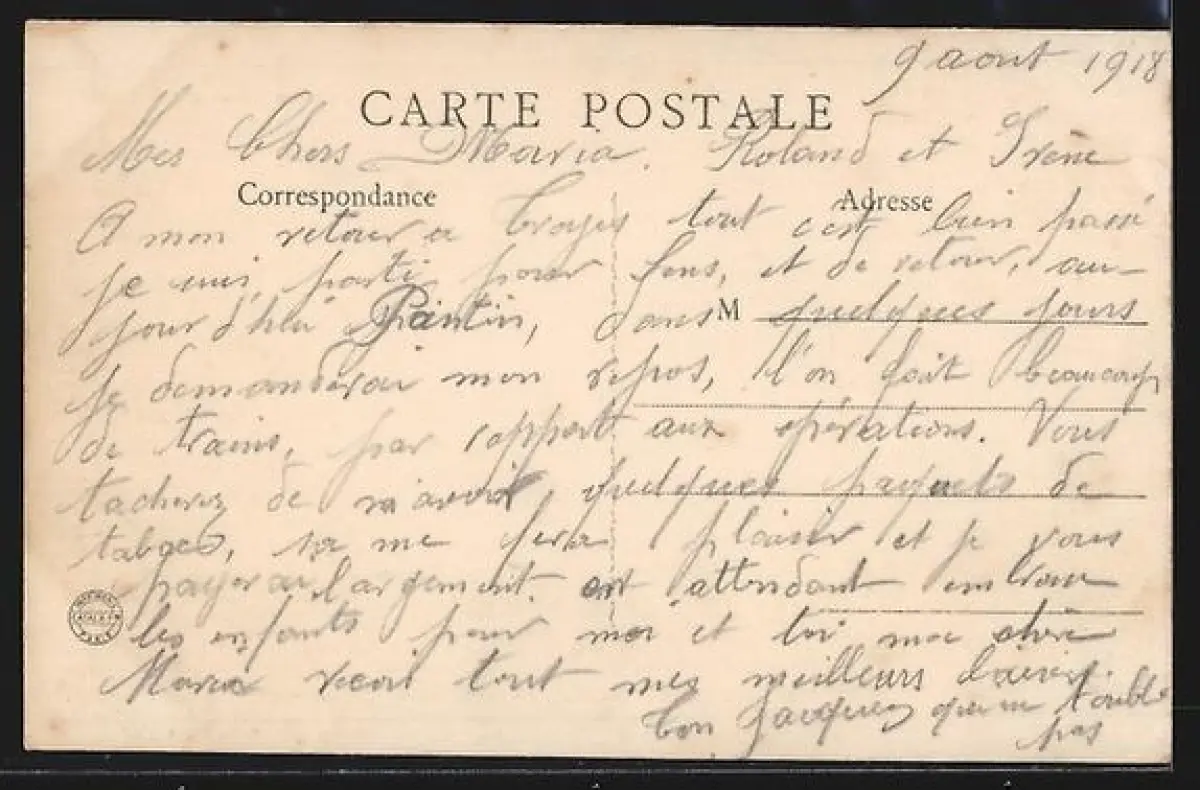 9 aout 1918
CARTE POSTALE
Mes Chers Maria. Roland et Irène
Correspondance
Adresse
A mon retour a Troyes tout c'est bien passé
je suis parti pour Sens, et de retour, au-
jour d'hui Pantin, dans quelques jours
M
je demanderai mon repos, l'on fait beaucoup
de trains, par rapport aux opérations. Vous
tacherez de m'avoir quelques paquets de
tabacs, sa me fera plaisir et je vous
payerai largement. en attendant embrasse
les enfants pour moi et toi ma chère
Maria recoit tout mes meilleurs
ton Jacques que ne t'oublie
pas